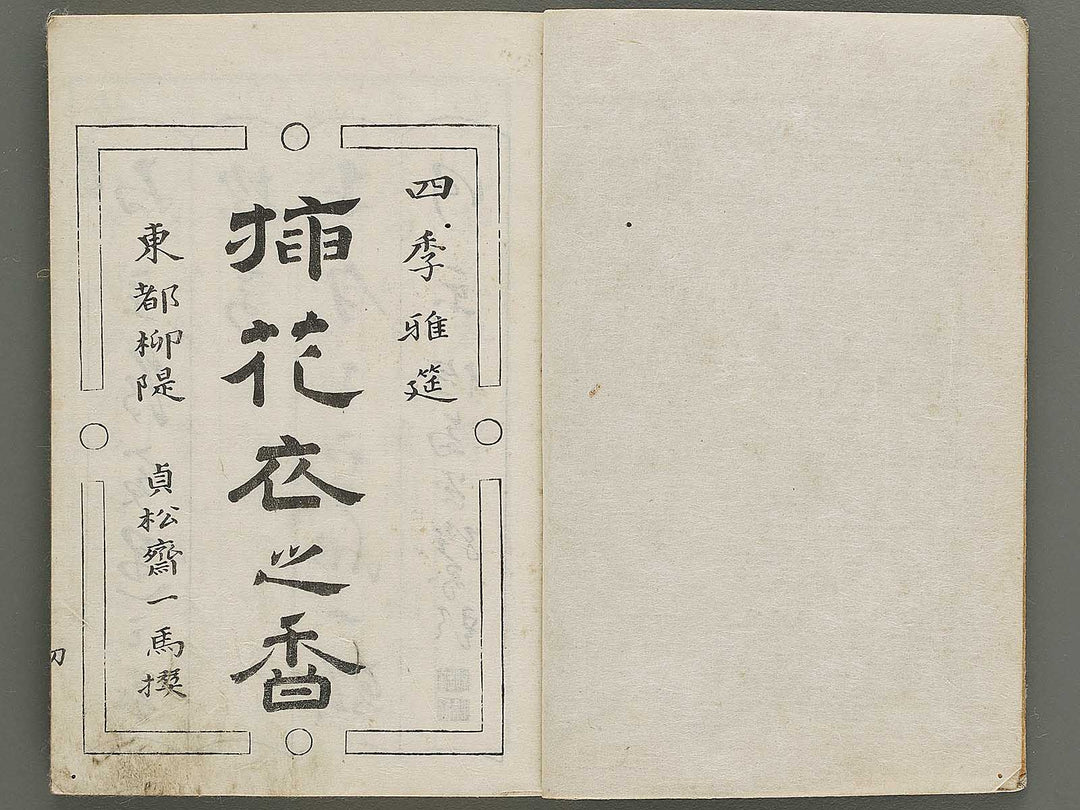 四季雅筵
挿花衣之香
東都柳隄　貞松齋一馬撰